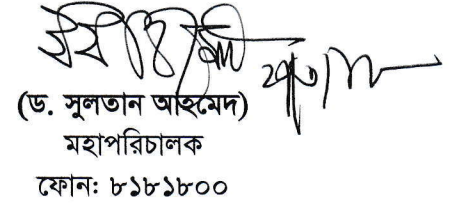 (ড. সুলতান আহমেদ)
মহাপরিচালক
ফোন: ৮১৮১৮০০